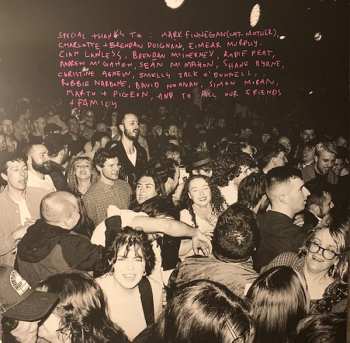 SPECIAL THANKS TO : MARK FINNEGAN (CAT. MOTHER),
CHARLOTTE + BRENDAN DUIGNAN, EIMEAR MURPHY,
CIAN LAWLESS, BRENDAN McINERNEY, ROBIE PEAT,
ANDREW McGAHON, SEÁN McMAHON, SHANE BYRNE,
CHRISTINE AGNEW, SMELLY JACK O'DONNELL,
ROBBIE NARDONE, DAVID NOONAN, SIMON MORAN,
MARTY + PIGEON, AND TO ALL OUR FRIENDS
+ FAMILY